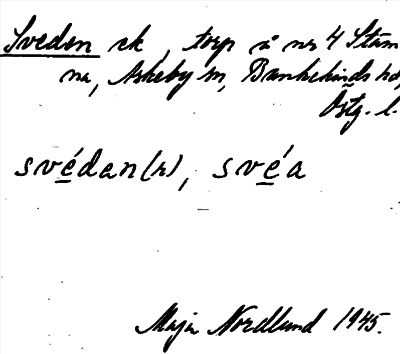 Sveden sk, torp å nr 4 Stäm
na, Askeby sn, Bankekinds hd,
Östg. l.
své̲dan(r), své̲a
Maja Nordlund 1945.